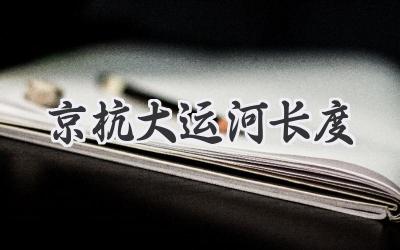 京杭大运河长度